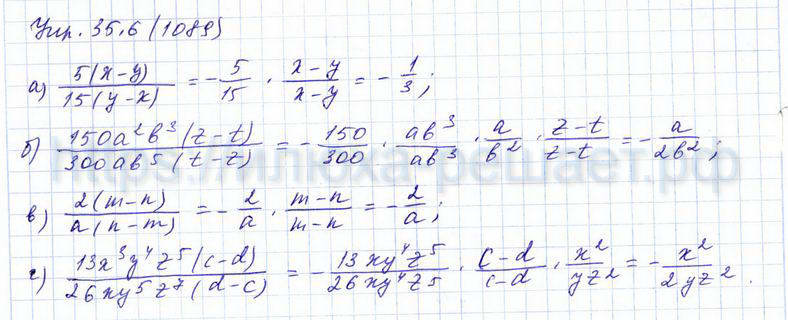 Упр. 35.6 (1089)
а) 5(x-y)/15(y-x) = -5/15 · x-y/x-y = -1/3;
б) 150a²b³(z-t)/300ab⁵(t-z) = -150/300 · ab³/ab³ · a/b² · z-t/z-t = -a/2b²;
в) 2(m-n)/a(n-m) = -2/a · m-n/m-n = -2/a;
г) 13x³y⁴z⁵(c-d)/26xy⁵z⁷(d-c) = -13xy⁴z⁵/26xy⁴z5 · c-d/c-d · x²/yz² = -x²/2yz².